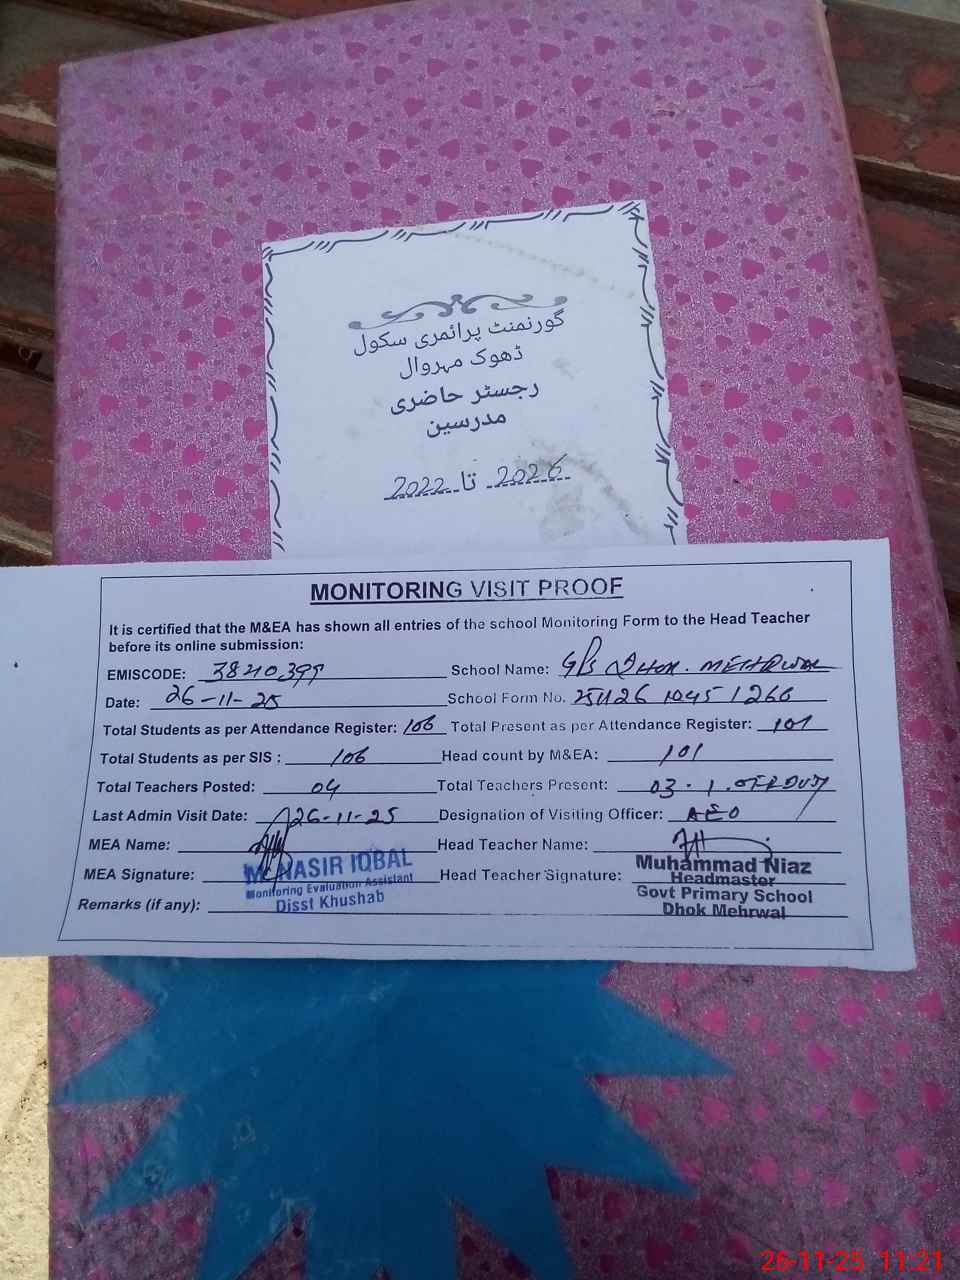 گورنمنٹ پرائمری سکول
ڈھوک مہروال
رجسٹر حاضری
مدرسین
2022 تا 2026
MONITORING VISIT PROOF
It is certified that the M&EA has shown all entries of the school Monitoring Form to the Head Teacher
before its online submission:
EMISCODE: 38240399 School Name: G/P/S Dhok. MEHRWAL
Date: 26-11-25 School Form No. 251126 1045 1266
Total Students as per Attendance Register: 106 Total Present as per Attendance Register: 101
Total Students as per SIS : 106 Head count by M&EA: 101
Total Teachers Posted: 04 Total Teachers Present: 03 - 1.
Last Admin Visit Date: 26-11-25 Designation of Visiting Officer: AEO
MEA Name: Head Teacher Name:
MEA Signature: M. NASIR IQBAL Head Teacher Signature: Muhammad Niaz
Monitoring Evaluation Assistant Headmaster
Remarks (if any): Disst Khushab Govt Primary School
Dhok Mehrwal
26-11-25 11:21